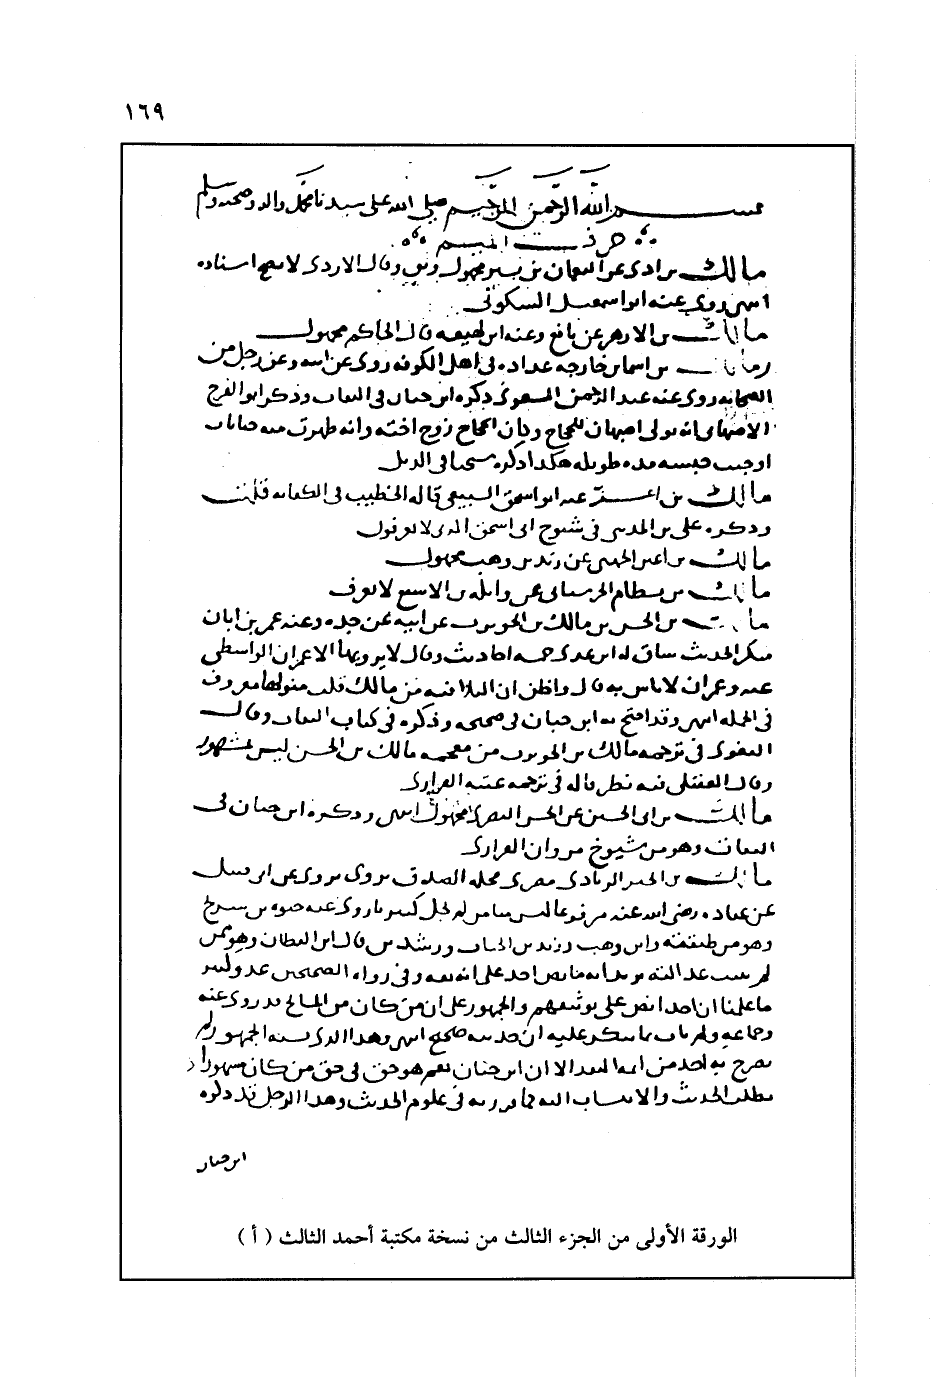 ١٦٩
بسم الله الرحمن الرحيم صلى الله على سيدنا محمد واله وصحبه وسلم
حرف الميم
مالك بن ادى عن النعمان بن بشير مجهول وثق وقال الازدى لا يصح اسناده
انتهى روى عنه ابو اسمعيل السكونى
مالك بن الازهر عن نافع وعنه ابن لهيعه قال الحاكم مجهول
مالك بن اسما بن خارجه عداده فى اهل الكوفه روى عن ابيه وعن رجل من
الصحابه روى عنه عبد الرحمن المسعودى ذكره ابن حبان فى الثقات وذكر ابو الفرج
الاصبهانى انه تولى اصبهان للحجاج وكان الحجاج زوج اخته وانه ظهرت منه خيانات
اوجبت حبسه مده طويله هكذا ذكره شيخنا فى الذيل
مالك بن اعز عنه ابو اسحق السبيعى قاله الخطيب فى الكفايه قلت
وذكره على بن المدينى فى شيوخ ابى اسحق الذى لا يعرفون
مالك بن اعين الجهنى عن زيد بن وهب مجهول
مالك بن بسطام الحرستانى عن واثله بن الاسقع لا يعرف
مالك بن الحسن بن مالك بن الحويرث عن ابيه عن جده وعنه عمر بن ابان
منكر الحديث ساق له ابن عدى خمسه احاديث وقال لا يرويها الا عمران الواسطى
عنه وعمران لا باس به قال واظن ان البلا فيه من مالك قلت متونها معروفه
فى الجمله انتهى وقد احتج به ابن حبان فى صحيحه وذكره فى كتاب الثقات وقال
البغوى فى ترجمه مالك بن الحويرث من معجمه مالك بن الحسن ليس بمشهور
وقال العقيلى فيه نظر قاله فى ترجمه عتبه الفزارى
مالك بن ابى الحسن عن الحسن البصرى مجهول انتهى وذكره ابن حبان فى
الثقات وهو من شيوخ مروان الفزارى
مالك بن الخير الزبادى مصرى محله الصدق يروى عن ابى قبيل
عن عباده رضى الله عنه مرفوعا ليس منا من لم يبجل كبيرنا روى عنه حيوه بن شريح
وهو من طبقته وابن وهب وزيد بن الحباب ورشدين قال ابن القطان وهو ممن
لم تثبت عدالته يريد انه ما نص احد على انه ثقه وفى رواه الصحيحين عدد كثير
ما علمنا ان احدا نص على توثيقهم والجمهور على ان من كان من المشايخ قد روى عنه
جماعه ولم يات بما ينكر عليه ان حديثه صحيح انتهى وهذا الذى نسبه الى الجمهور لم
يصرح به احد من ايمه النقد الا ابن حبان نعم هو حق فى حق من كان مشهورا
بطلب الحديث والانتساب اليه كما قررته فى علوم الحديث وهذا الرجل قد ذكره
ابن حبان
الورقة الأولى من الجزء الثالث من نسخة مكتبة أحمد الثالث ( أ )